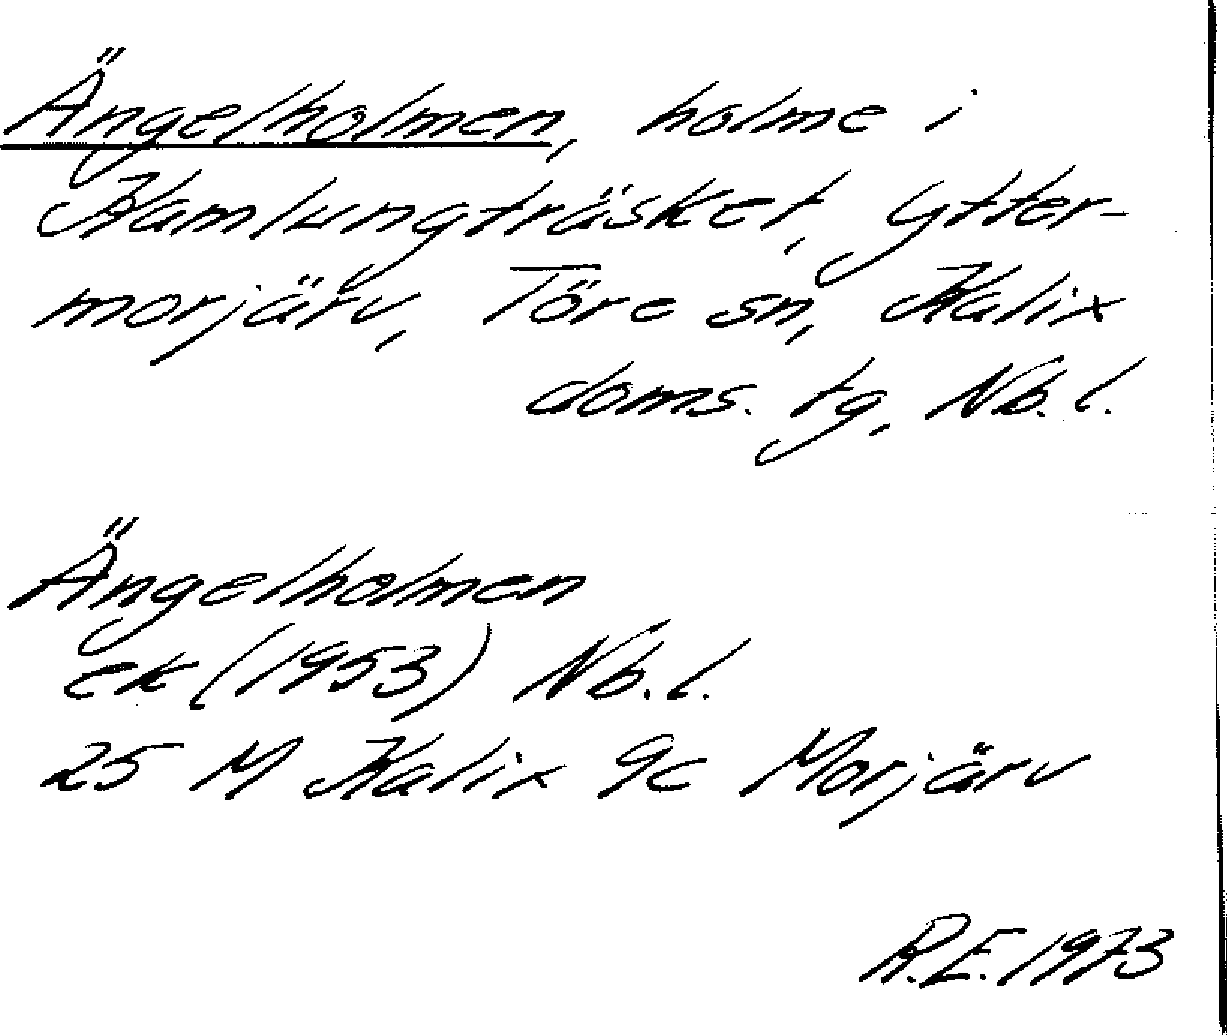 Ängelholmen, holme i
Kamlungträsket, Ytter-
morjärv, Töre sn, Kalix
doms. tg, Nb. l.
Ängelholmen
ek (1953) Nb. l.
25 M Kalix 9c Morjärv
R.E. 1973